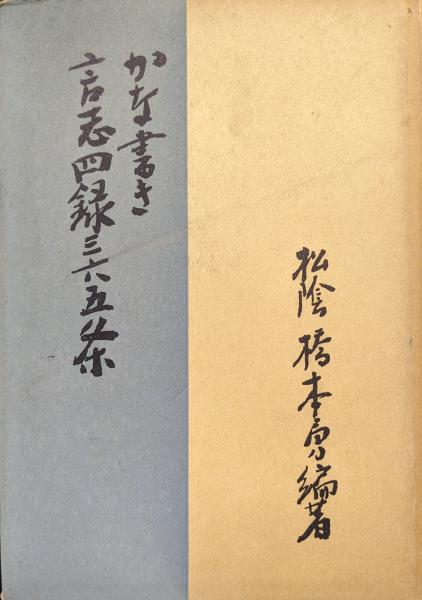 かな書き
言志四録三六五条
松陰 橋本 編著